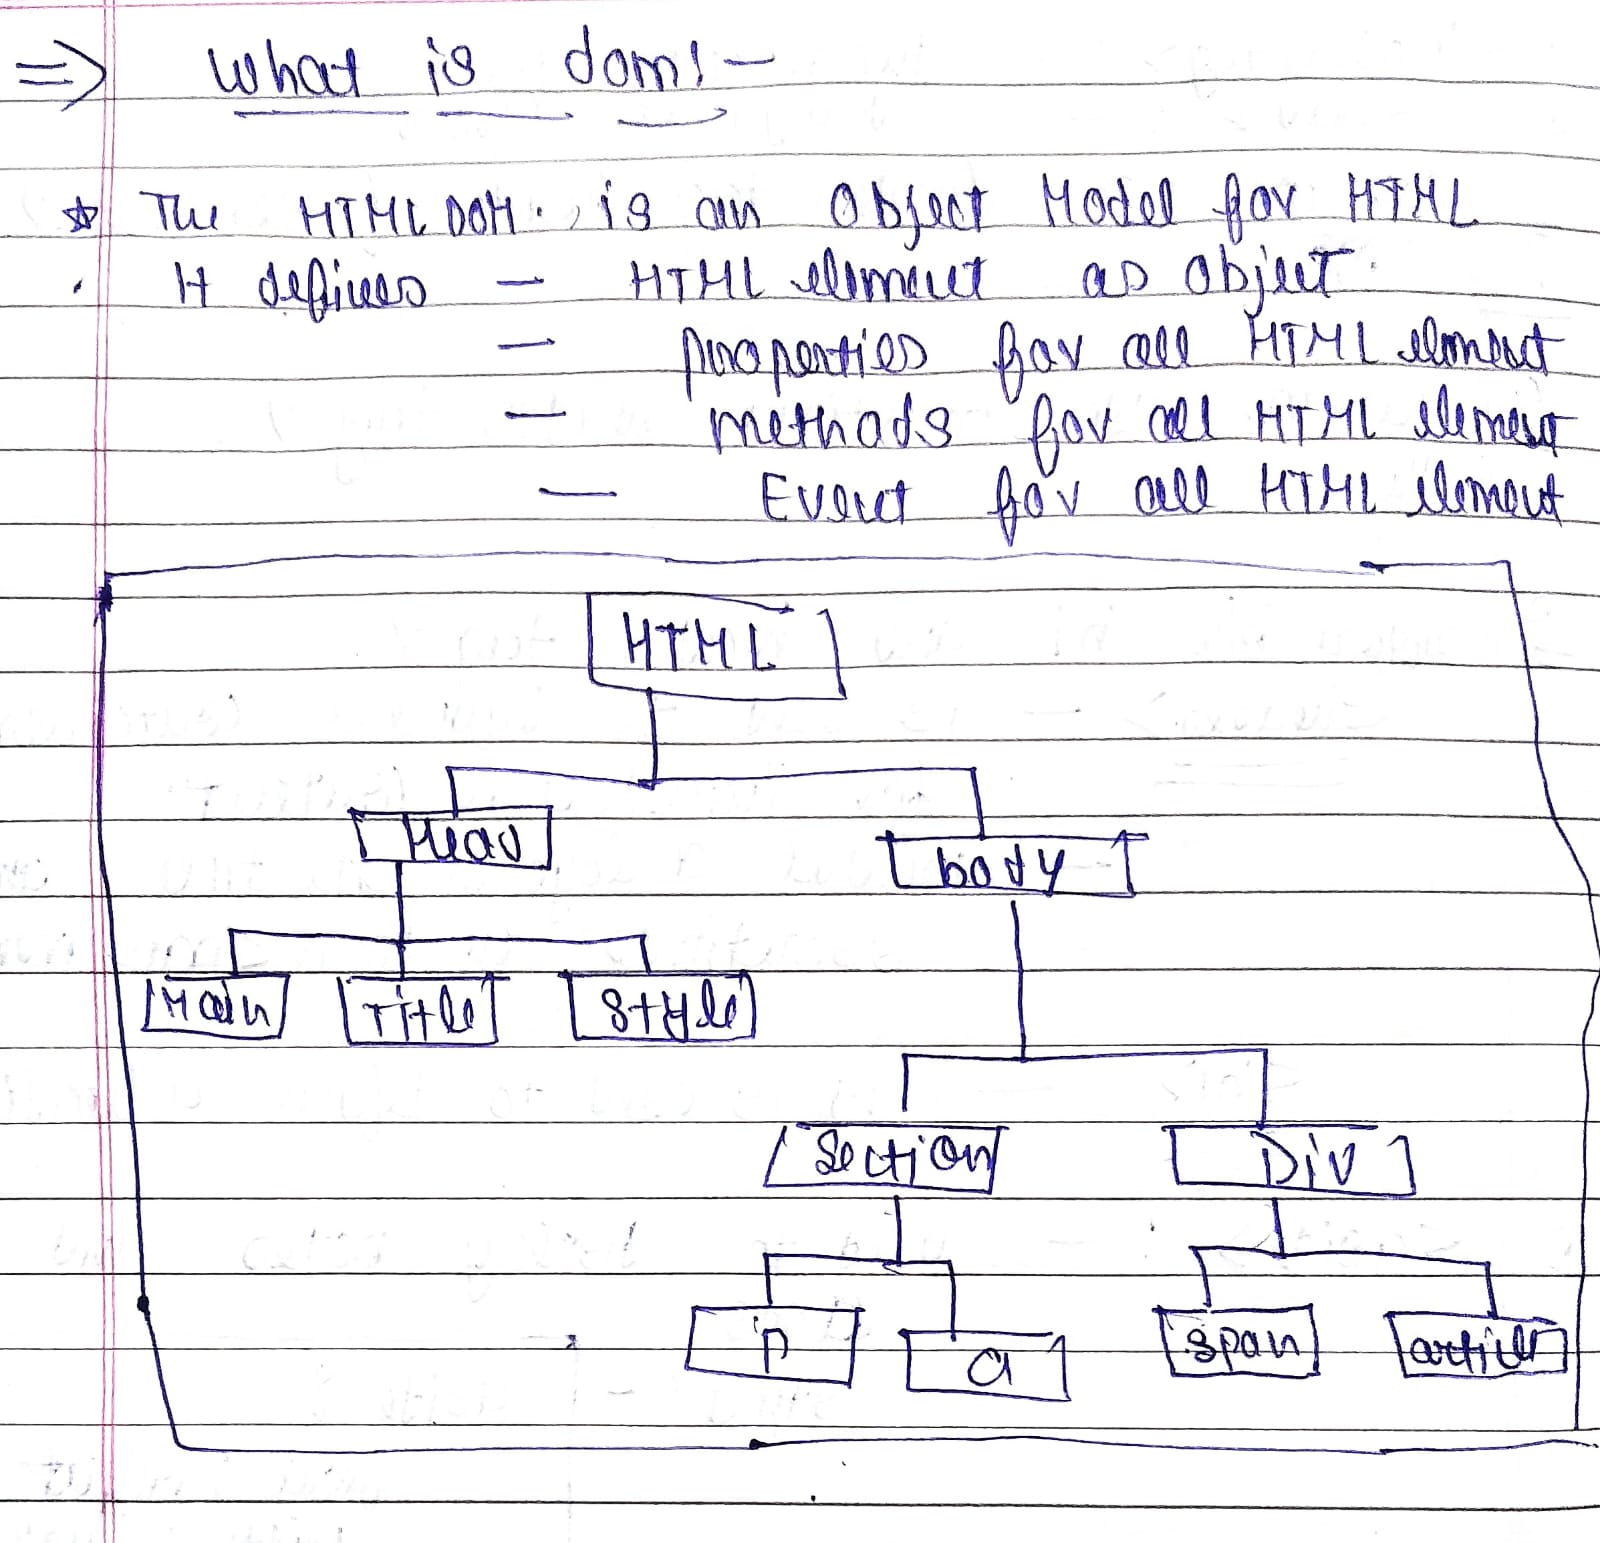 => What is dom:-
☆ The HTML DOM. is an Object Model for HTML
. It defines — HTML element as object.
— properties for all HTML element
— methods for all HTML element
— Event for all HTML element
HTML
Head
body
Main Title Style
Section Div
p a span article